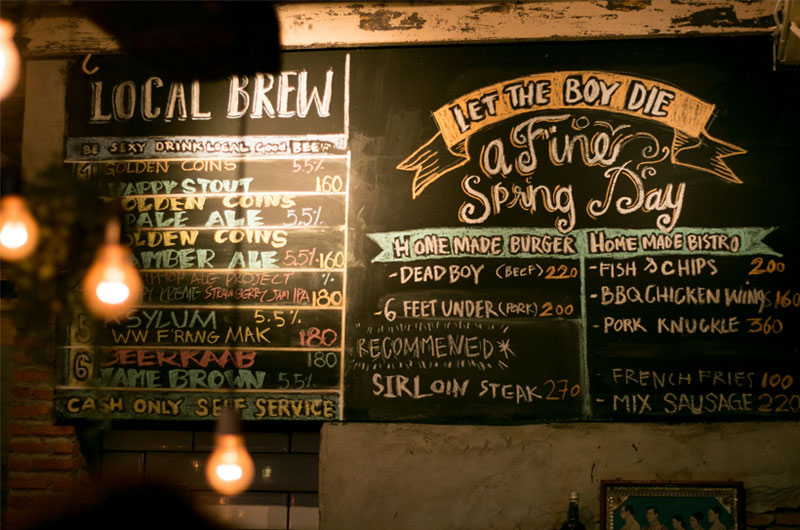 LOCAL BREW
BE SEXY DRINK LOCAL GOOD BEER
GOLDEN COINS 5.5%
HAPPY STOUT 160
GOLDEN COINS
PALE ALE 5.5%
GOLDEN COINS
AMBER ALE 5.5% 160
ALE PROJECT %
STRAWBERRY JAM IPA 180
5 ASYLUM 5.5%
WW F'RANG MAK 180
6 BEERKAAB 180
BROWN 5.5%
CASH ONLY SELF SERVICE
LET THE BOY DIE
a Fine
Spring Day
HOME MADE BURGER
- DEADBOY (BEEF) 220
- 6 FEET UNDER (PORK) 200
RECOMMENED*
SIRLOIN STEAK 270
HOME MADE BISTRO
- FISH & CHIPS 200
- BBQ CHICKEN WINGS 160
- PORK KNUCKLE 360
- FRENCH FRIES 100
- MIX SAUSAGE 220